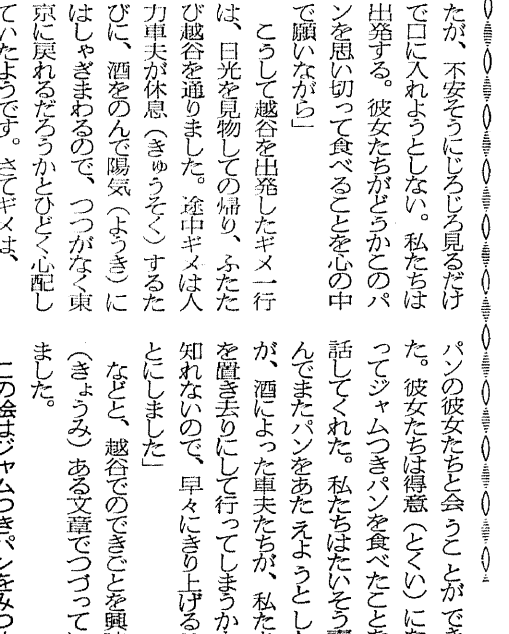 たが、不安そうにじろじろ見るだけ
で口に入れようとしない。私たちは
出発する。彼女たちがどうかこのパ
ンを思い切って食べることを心の中
で願いながら」
こうして越谷を出発したギメ一行
は、日光を見物しての帰り、ふたた
び越谷を通りました。途中ギメは人
力車夫が休息（きゅうそく）するた
びに、酒をのんで陽気（ようき）に
はしゃぎまわるので、つつがなく東
京に戻れるだろうかとひどく心配し
ていたようです。さてギメは、
パンの彼女たちと会うことができ
た。彼女たちは得意（とくい）にな
ってジャムつきパンを食べたことを
話してくれた。私たちはたいそう
んでまたパンをあたえようとし
が、酒によった車夫たちが、私た
を置き去りにして行ってしまうか
知れないので、早々にきり上げる
とにしました」
などと、越谷でのできごとを興
（きょうみ）ある文章でつづって
ました。
この絵はジャムつきパンをみつ